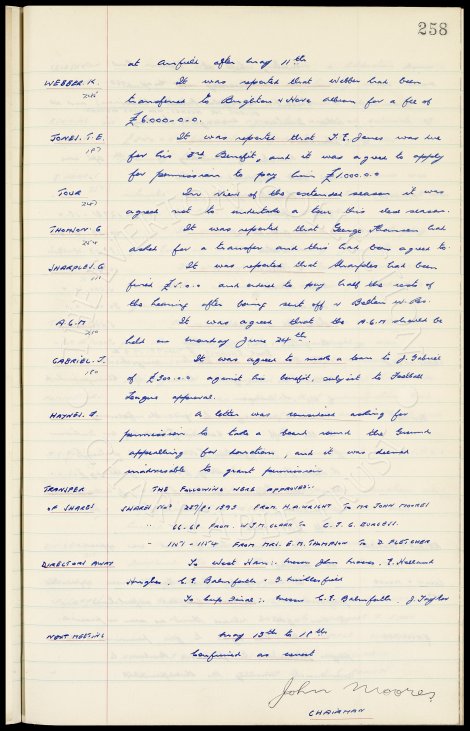 258
at Anfield after May 11th
WEBBER K. It was reported that Webber had been
245 transferred to Brighton & Hove Albion for a fee of
£6.000-0-0.
JONES. T.E. It was reported that T.E. Jones was due
197 for his 3rd Benefit, and it was agreed to apply
for permission to pay him £1,000.0.0
TOUR In view of the extended season it was
247 agreed not to undertake a tour this close season.
THOMSON G It was reported that George Thomson had
254 asked for a transfer and this had been agreed to.
SHARPLES. G. It was reported that Sharples had been
fined £5.0.0 and ordered to pay half the costs of
the hearing after being sent off v Bolton w. Res.
A.G.M It was agreed that the A.G.M should be
250 held on Monday June 24th.
GABRIEL. J. It was agreed to make a loan to J. Gabriel
180 of £300.0.0 against his benefit, subject to Football
League approval.
HAYNES. A letter was considered asking for
permission to take a board round the Ground
appealing for donations, and it was deemed
inadvisable to grant permission
TRANSFER THE FOLLOWING WERE APPROVED:-
OF SHARES SHARES Nos 1893 FROM H.A. WRIGHT TO MR JOHN MOORES
" 66-68 FROM W.J.M. CLARK TO C.T.G. BURGESS.
" 1151 - 1154 FROM MRS. E.M. THOMPSON TO D. PLETCHER
DIRECTORS AWAY To West Ham:- Messrs John Moores, F. Holland
Hughes, C.E. Balmforth & F. Micklesfield
To Cup Final:- Messrs C.E. Balmforth, J. Taylor
NEXT MEETING May 13th to 19th
Confirmed as correct
John Moores
CHAIRMAN